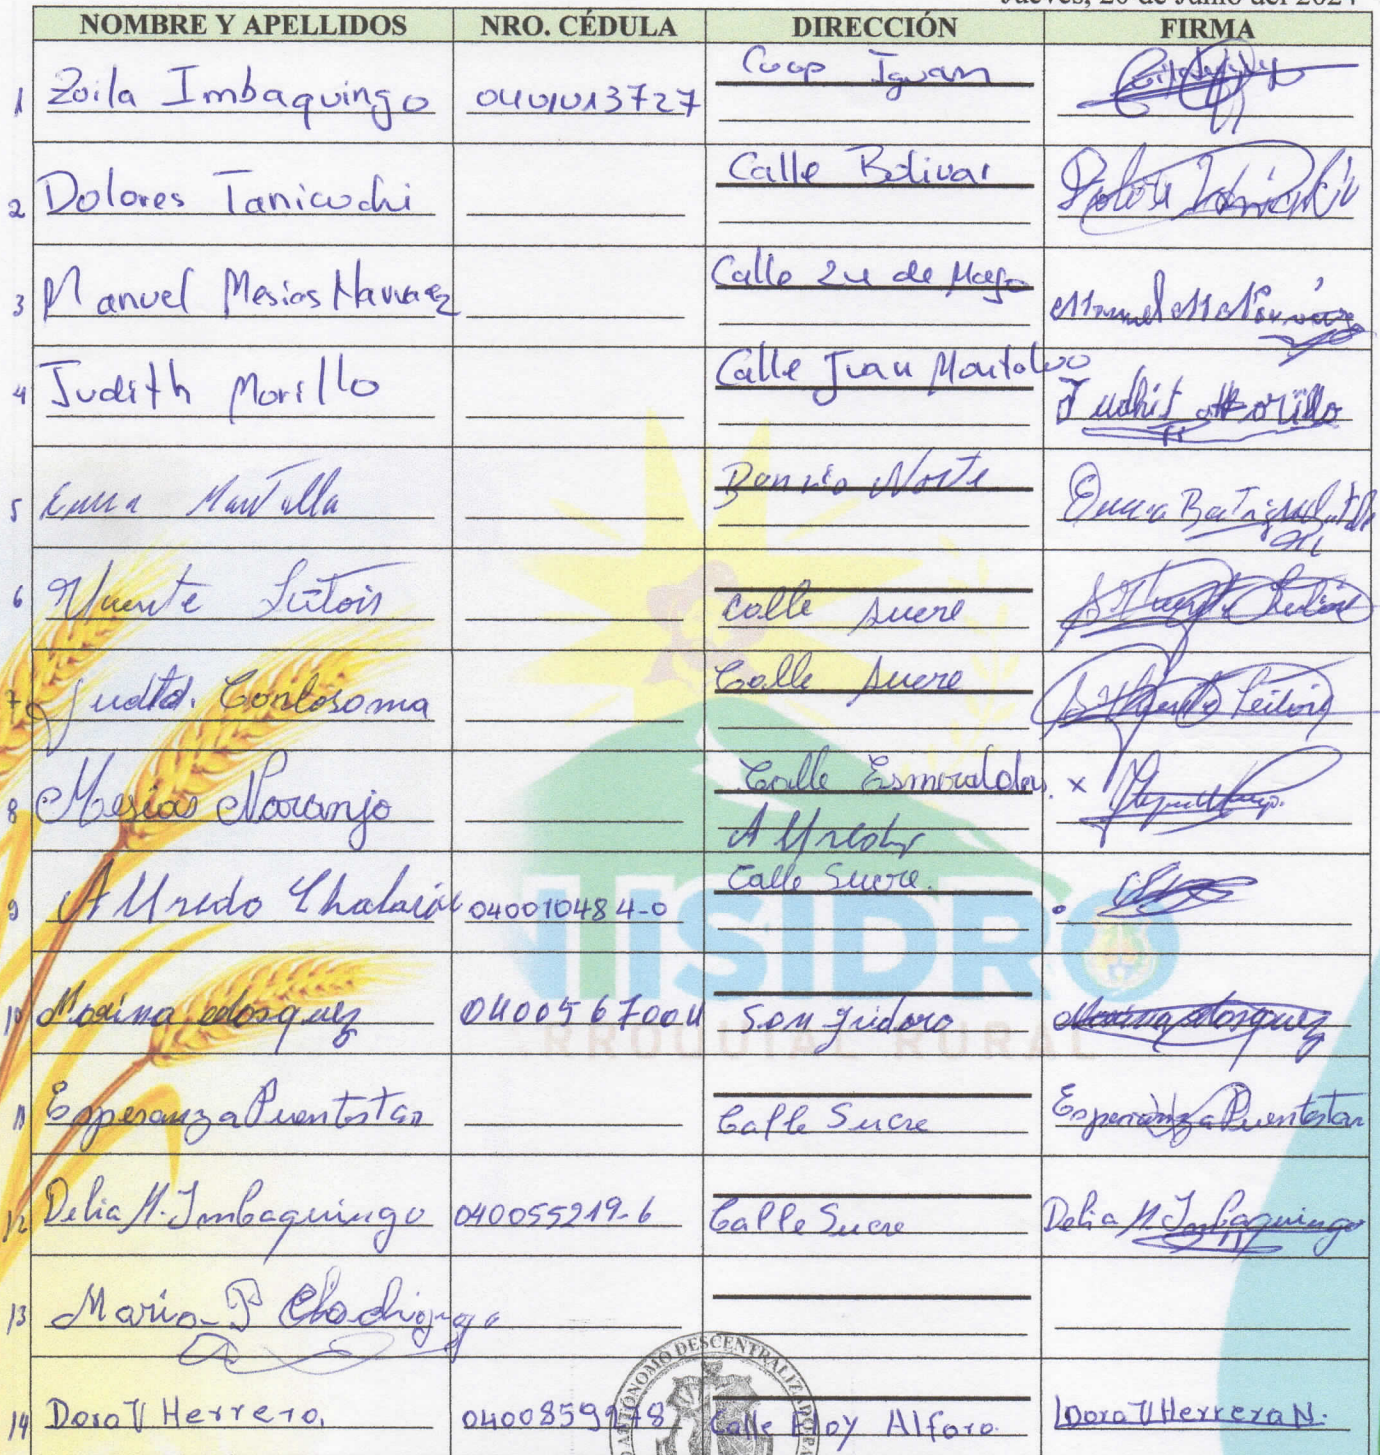 Jueves, 20 de Junio del 2024
NOMBRE Y APELLIDOS NRO. CÉDULA DIRECCIÓN FIRMA
1 Zoila Imbaquingo 0401013727 Coop Iguan
2 Dolores Tanicuchi Calle Bolivar
3 Manuel Mesias Narvaez Calle 24 de Mayo Manuel M Narváez
4 Judith Morillo Calle Juan Montalvo Judhit Morillo
5 Emma Mantilla Barrio Norte
6 Vicente calle sucre
7 Judith Calle Sucre
8 Mesias Naranjo Calle Esmeraldas. x
Alfredo
9 Alfredo 040010484-0 Calle Sucre.
10 Maxima Mosquez 0400567004 San Isidoro Maxima Mosquez
11 Esperanza Puentestar Calle Sucre Esperanza Puentestar
12 Delia M. Imbaquingo 040055219-6 Calle Sucre Delia M Imbaquingo
13 Maria P
14 Dora V Herrera. 0400859978 Calle Eloy Alfaro. Dora V Herrera N.
ISIDRO
RROQUIAL RURAL
AUTÓNOMO DESCENTRALIZADO PA